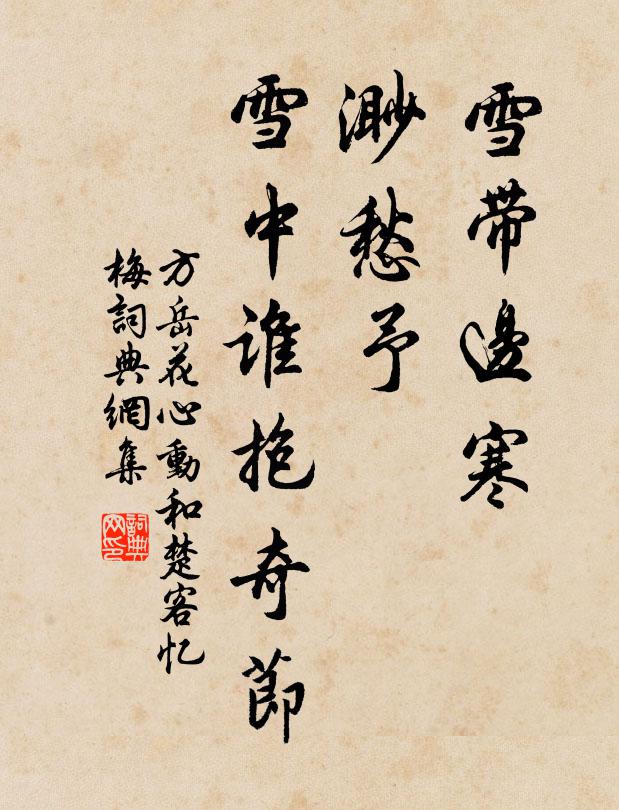 雪帶邊寒
渺愁予
雪中誰抱奇節
方岳花心動和楚客忆
梅詞典網集
詞典
网印